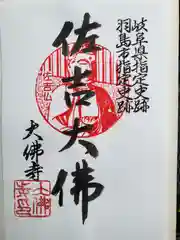 岐阜県指定史跡
羽島市指定史跡
佐吉大佛
佐吉仏
大佛寺